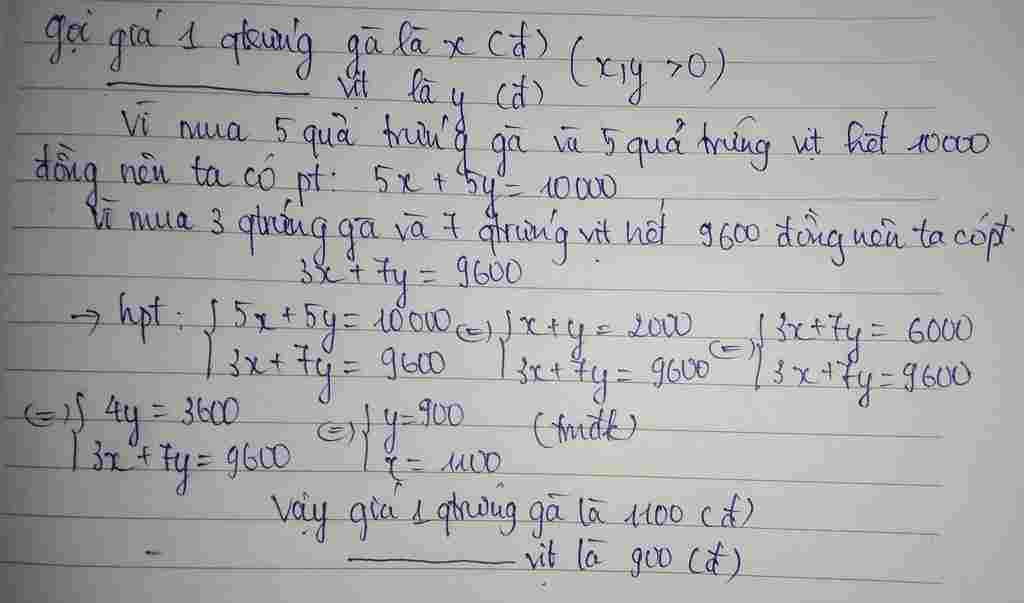 gọi giá 1 qtrứng gà là x (đ) (x,y >0)
vịt là y (đ)
Vì mua 5 quả trứng gà và 5 quả trứng vịt hết 10000
đồng nên ta có pt: 5x + 5y = 10000
Vì mua 3 qtrứng gà và 7 qtrứng vịt hết 9600 đồng nên ta có pt
3x + 7y = 9600
→ hpt: { 5x + 5y = 10000 (=) { x + y = 2000 (=) { 3x + 7y = 6000
3x + 7y = 9600 3x + 7y = 9600 3x + 7y = 9600
(=) { 4y = 3600 (=) { y = 900 (tmđk)
3x + 7y = 9600 x = 1100
Vậy giá 1 qtrứng gà là 1100 (đ)
vịt là 900 (đ)